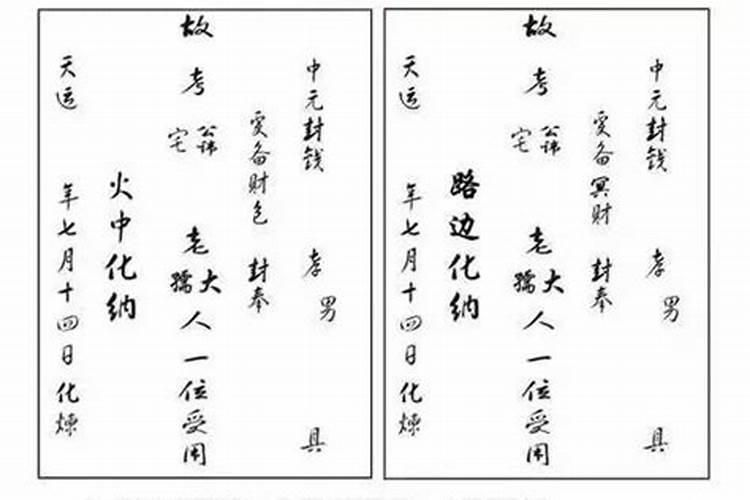 中元封钱 孝男 具
爰备财包 封奉
故考 公讳 宅 老大孺人一位受用
火中化纳
天运 年七月十四日化煉
中元封钱 孝男 具
爰备冥财 封奉
故考 公讳 宅 老大孺人一位受用
路边化纳
天运 年七月十四日化煉